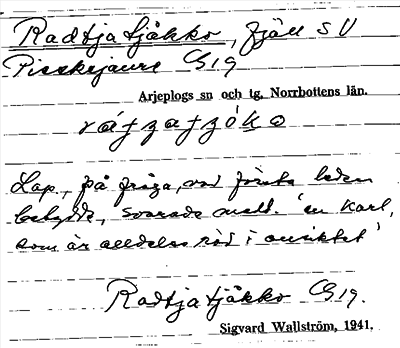 Radtjatjåkko, fjäll SV
Pieskejaure G19
Arjeplogs sn och tg, Norrbottens län.
Lap., på fråga, vad första leden
betydde, svarade medd. 'en karl,
som är alldeles röd i ansiktet'
Radtjatjåkko G19.
Sigvard Wallström, 1941.